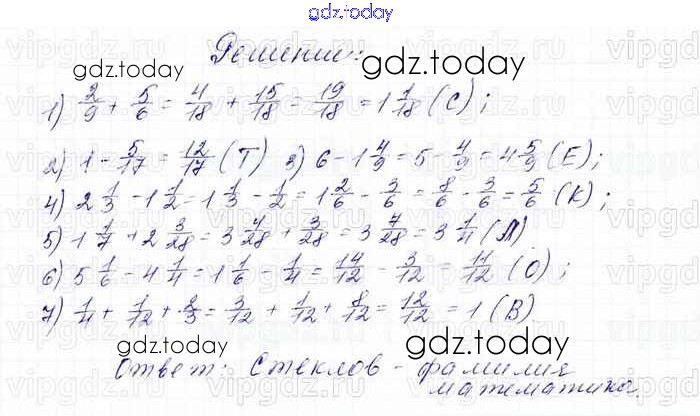 gdz.today
Решение:
gdz.today gdz.today
1) 2/9 + 5/6 = 4/18 + 15/18 = 19/18 = 1 1/18 (С);
2) 1 - 5/17 = 12/17 (Т) 3) 6 - 1 4/9 = 5 - 4/9 = 4 5/9 (Е);
4) 2 1/3 - 1 1/2 = 1 1/3 - 1/2 = 1 2/6 - 3/6 = 8/6 - 3/6 = 5/6 (К);
5) 1 1/7 + 2 3/28 = 3 4/28 + 3/28 = 3 7/28 = 3 1/4 (Л)
6) 5 1/6 - 4 1/4 = 1 1/6 - 1/4 = 14/12 - 3/12 = 11/12 (О);
7) 1/4 + 1/12 + 2/3 = 3/12 + 1/12 + 8/12 = 12/12 = 1 (В).
gdz.today gdz.today
Ответ: Стеклов - фамилия
математика.